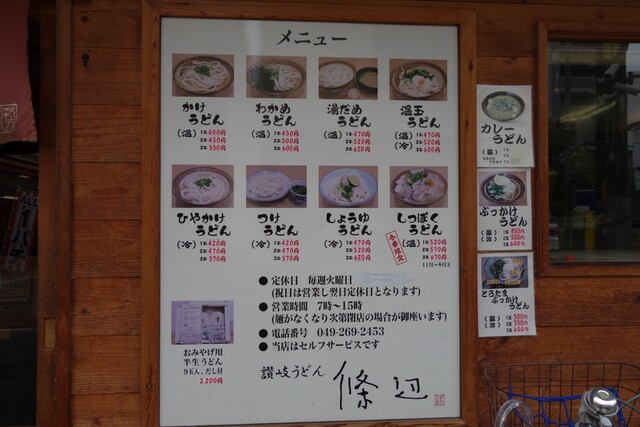 メニュー
かけ
うどん
(温)
1玉 400円
2玉 450円
3玉 550円
わかめ
うどん
(温)
1玉 450円
2玉 500円
3玉 600円
湯だめ
うどん
(温)
1玉 470円
2玉 520円
3玉 620円
温玉
うどん
(温)
(冷)
1玉 470円
2玉 520円
3玉 620円
ひやかけ
うどん
(冷)
1玉 420円
2玉 470円
3玉 570円
つけ
うどん
(冷)
1玉 420円
2玉 470円
3玉 570円
しょうゆ
うどん
(冷)
1玉 470円
2玉 520円
3玉 620円
しっぽく
うどん
冬季限定
(温)
1玉 520円
2玉 570円
3玉 670円
● 定休日 毎週火曜日
(祝日は営業し翌日定休日となります)
● 営業時間 7時〜15時
(麺がなくなり次第閉店の場合が御座います)
● 電話番号 049-269-2453
● 当店はセルフサービスです
讃岐うどん 條辺
おみやげ用
半生うどん
9玉入、だし付
2,200円
カレー
うどん
(温)
ぶっかけ
うどん
(温)
(冷)
1玉 450円
2玉 500円
3玉 600円
とろたま
ぶっかけ
うどん
(温)
(冷)
1玉 500円
2玉 550円
3玉 650円